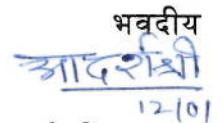 भवदीय
आदर्शश्री
12/01